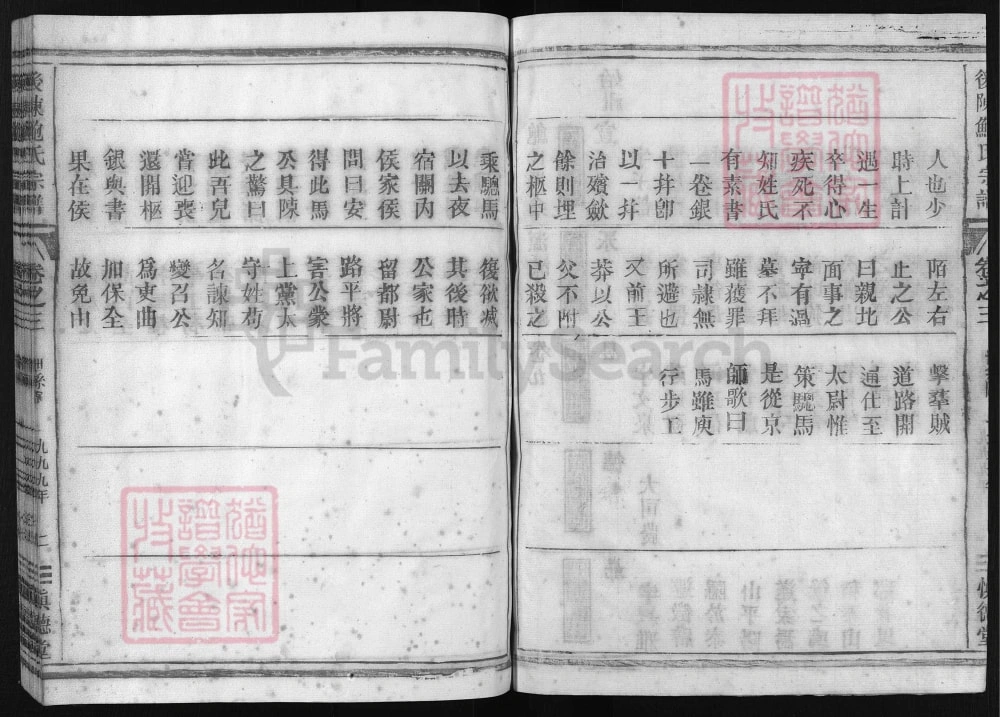 後陳鮑氏宗譜
卷之三
世德堂
人也少
時上計
遇一生
卒得心
疾死不
知姓氏
有素書
一卷銀
十幷卽
以一幷
治殯歛
餘則埋
之柩中
乘驄馬
以去夜
宿關內
侯家侯
問曰安
得此馬
永具陳
之驚曰
此吾兒
當迎喪
還開柩
銀與書
果在侯
陌左右
止之公
曰親北
面事之
寧有過
墓不拜
雖蒦罪
司隸無
所避也
又前王
莽以公
父不附
已殺之
復欲滅
其後時
公家屯
留都尉
路平將
害公蒙
上黨太
守姓苟
名諫知
變召公
爲吏曲
加保全
故免山
擊羣賊
道路開
通仕至
太尉惟
策驄馬
是從京
師歌曰
馬雖庾
行步工
後陳鮑氏宗譜
卷之三
九九九年
FamilySearch